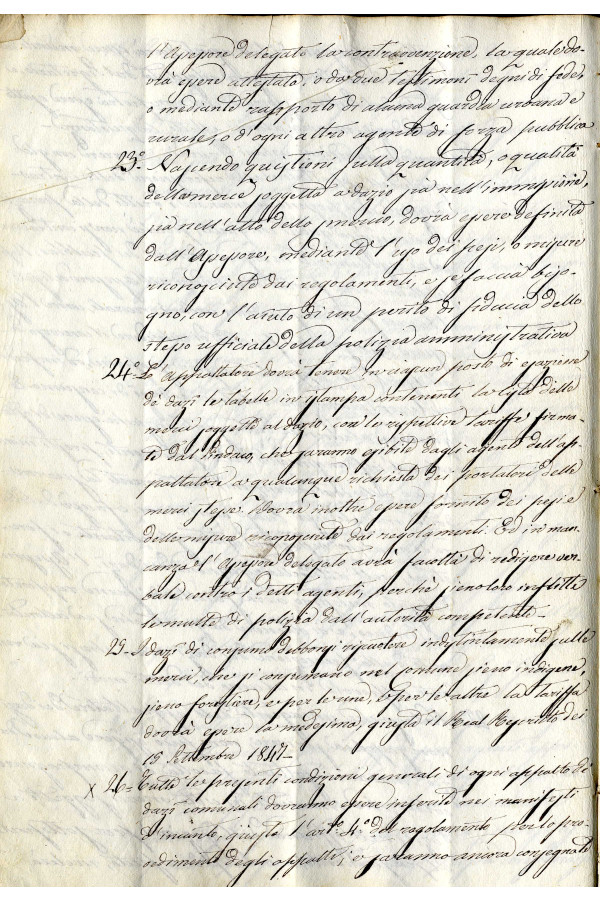 l'Assessore delegato la contravvenzione, la quale do-
vrà essere attestata, o da due testimoni degni di fede,
o mediante rapporto di alcuna guardia urbana e
rurale, o d'ogni altro agente di forza pubblica
23.° Nascendo quistioni sulla quantità, o qualità
della merce soggetta a dazio sia nell'immissione,
sia nell'atto dello smercio, dovrà essere definita
dall'Assessore, mediante l'uso dei pesi, o misure
riconosciute dai regolamenti, e se faccia biso-
gno, con l'ajuto di un perito di fiducia dello
stesso ufficiale della polizia amministrativa
24.° L'appaltatore dovrà tenere in ciascun posto di esazione
de' dazi le tabelle in istampa contenenti la lista delle
merci soggette al dazio, con le rispettive tariffe firma-
te dal Sindaco, che saranno esibite dagli agenti dell'ap-
paltatore a qualunque richiesta dei portatori delle
merci stesse. Dovrà inoltre essere fornito dei pesi e
delle misure riconosciute dai regolamenti. Ed in man-
canza l'Assessore delegato avrà facoltà di redigere ver-
bale contro i detti agenti, perchè sieno loro inflitte
le multe di polizia dall'autorità competente.
25- I dazi di consumo debbonsi riscuotere indistintamente sulle
merci, che si consumano nel comune sieno indigene,
sieno forestiere, e per le une, e per le altre la tariffa
dovrà essere la medesima, giusta il Real Rescritto dei
15 Settembre 1847-
x 26= Tutte le presenti condizioni generali di ogni appalto de'
dazi comunali dovranno essere inserite nei manifesti
d'incanto, giusta l'art.° 4.° del regolamento per lo pro-
cedimento degli appalti; e saranno ancora consegnate